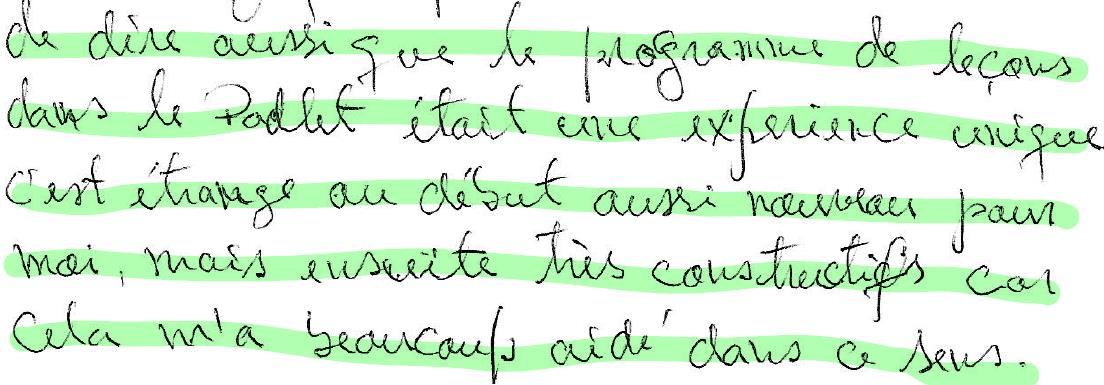 de dire aussi que le programme de leçons
dans le Padlet était une expérience unique
c'est étrange au début aussi nouveau pour
moi, mais ensuite très constructifs car
cela m'a beaucoup aidé dans ce sens.